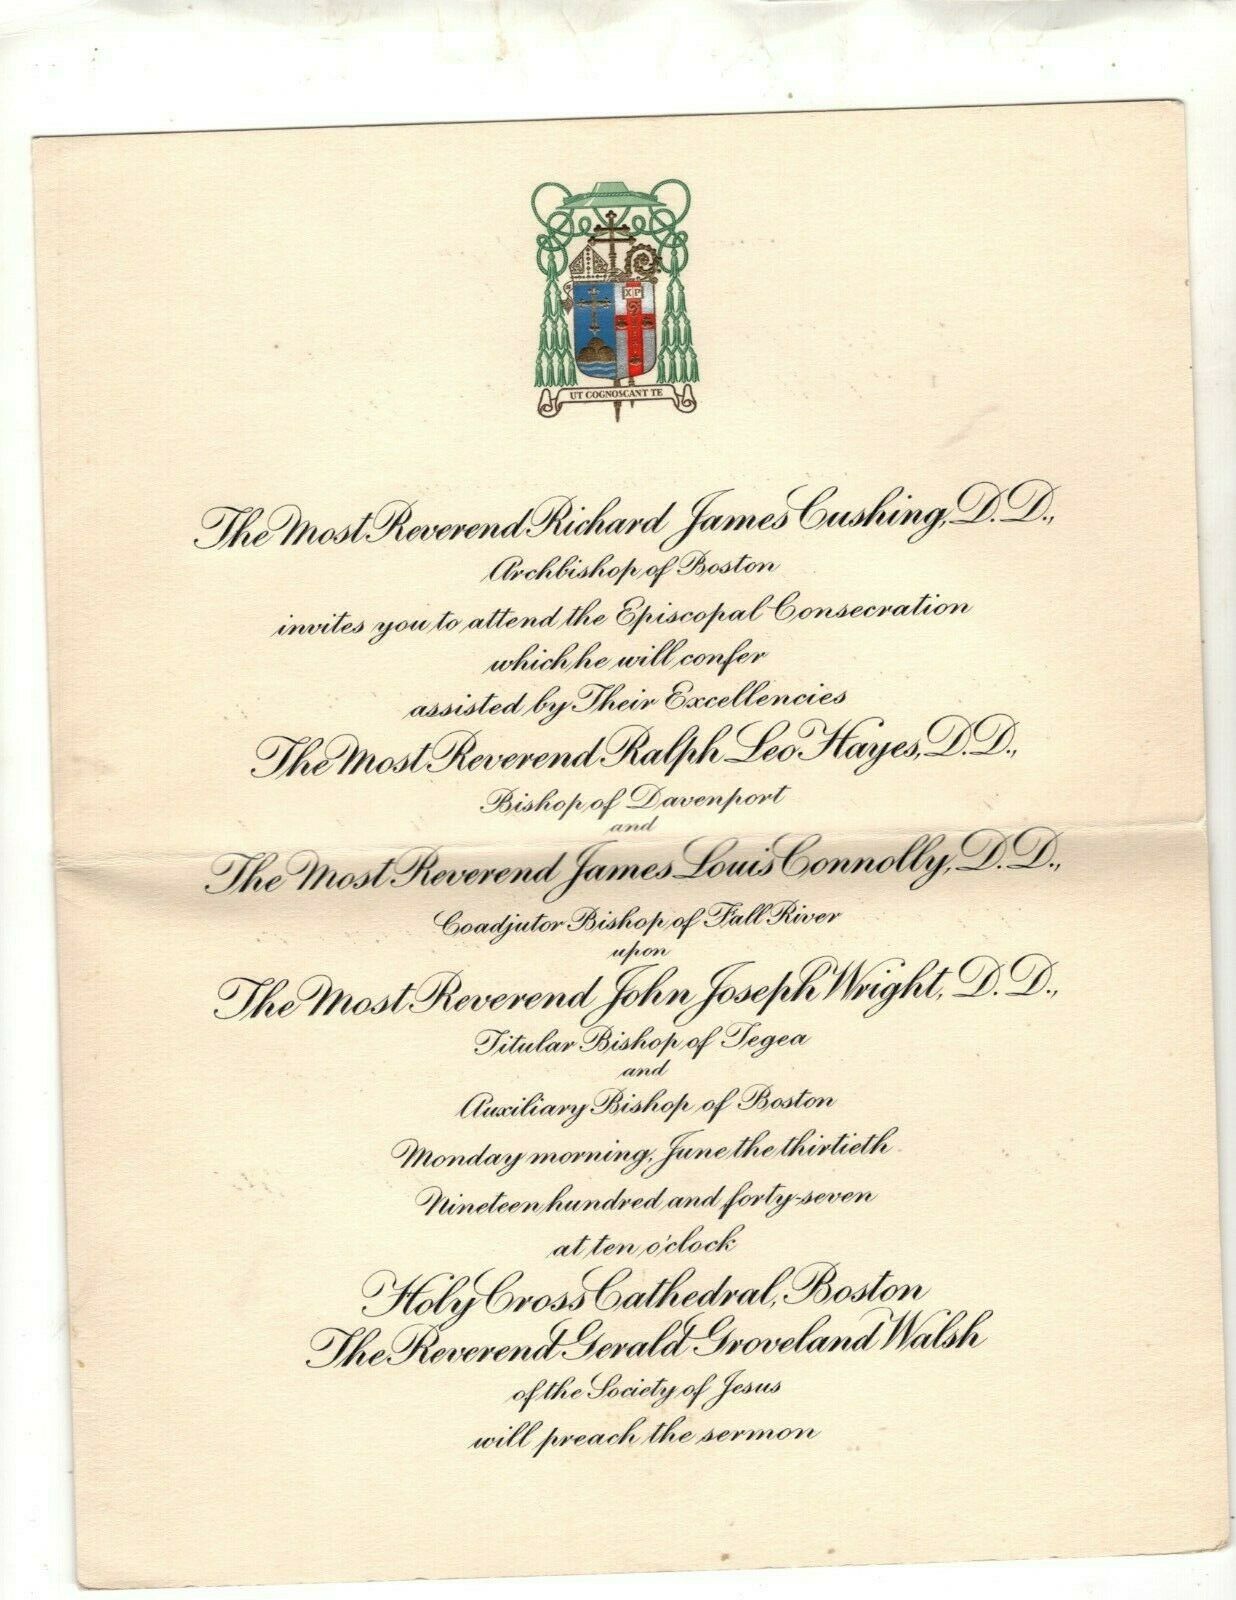 XP
UT COGNOSCANT TE
The Most Reverend Richard James Cushing, D.D.,
Archbishop of Boston
invites you to attend the Episcopal Consecration
which he will confer
assisted by Their Excellencies
The Most Reverend Ralph Leo Hayes, D.D.,
Bishop of Davenport
and
The Most Reverend James Louis Connolly, D.D.,
Coadjutor Bishop of Fall River
upon
The Most Reverend John Joseph Wright, D.D.,
Titular Bishop of Tegea
and
Auxiliary Bishop of Boston
Monday morning, June the thirtieth
Nineteen hundred and forty-seven
at ten o'clock
Holy Cross Cathedral, Boston
The Reverend Gerald Groveland Walsh
of the Society of Jesus
will preach the sermon